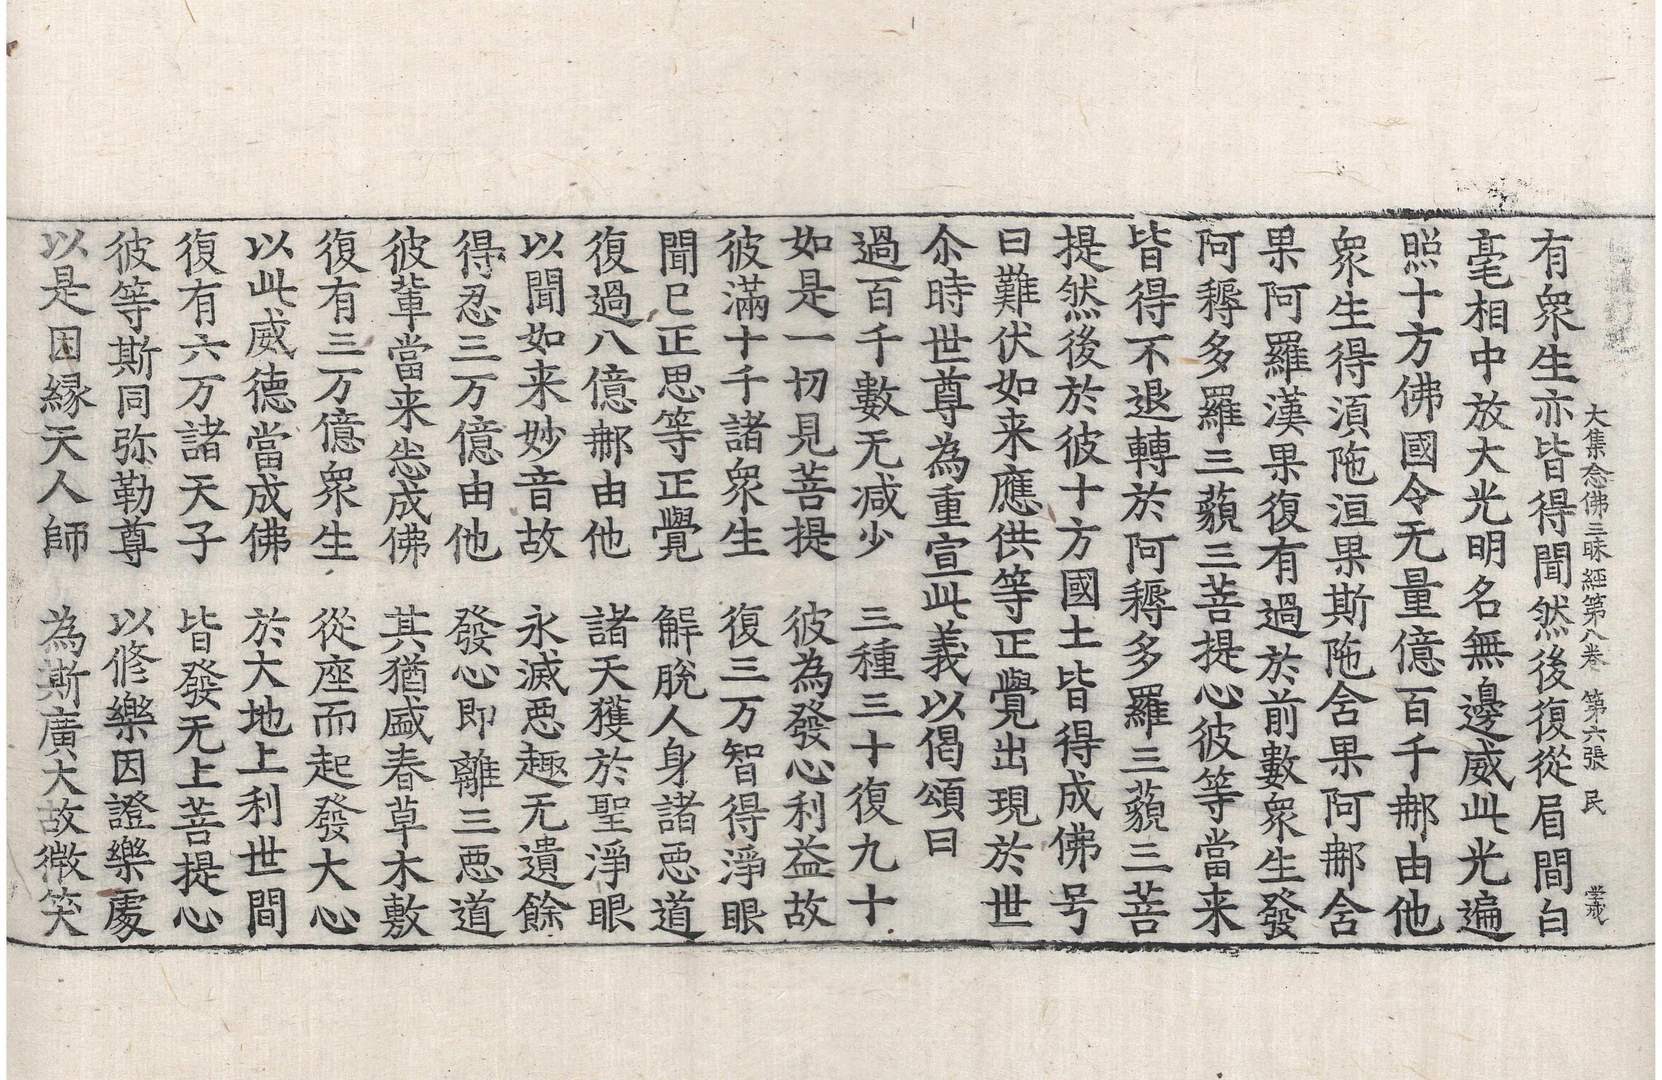 大集念佛三昧經第八卷 第六張 民
有衆生亦皆得聞然後復從眉間白
毫相中放大光明名無邊威此光遍
照十方佛國令无量億百千那由他
衆生得湏陁洹果斯陁含果阿那含
果阿羅漢果復有過於前數衆生發
阿耨多羅三藐三菩提心彼等當来
皆得不退轉於阿耨多羅三藐三菩
提然後於彼十方國土皆得成佛号
曰難伏如来應供等正覺出現於世
尒時世尊為重宣此義以偈頌曰
過百千數无减少 三種三十復九十
如是一切見菩提 彼為發心利益故
彼滿十千諸衆生 復三万智得淨眼
聞已正思等正覺 解脫人身諸惡道
復過八億那由他 諸天獲於聖淨眼
以聞如来妙音故 永滅惡趣无遺餘
得忍三万億由他 發心即離三惡道
彼輩當来悉成佛 其猶盛春草木敷
復有三万億衆生 從座而起發大心
以此威德當成佛 於大地上利世間
復有六万諸天子 皆發无上菩提心
彼等斯同弥勒尊 以修樂因證樂處
以是因縁天人師 為斯廣大故微笑